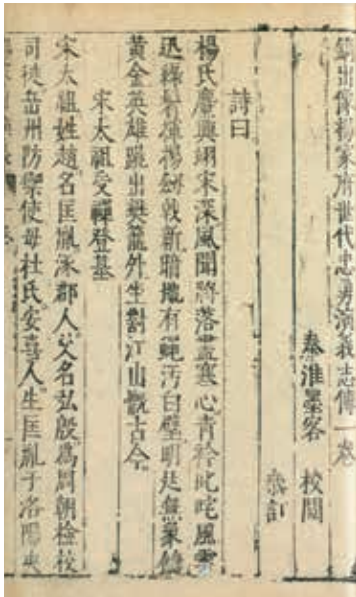 鐫出像楊家府世代忠勇演義志傳一卷
秦淮墨客 校閱
參訂
詩曰
楊氏麕興翊宋深風聞將落盡寒心青衿叱咤風雲
迅綠髮揮揚劍戟新暗擿有蠅汚白璧明廷無象鑄
黃金英雄跳出樊籠外坐對江山慨古今
宋太祖受禪登基
宋太祖姓趙名匡胤涿郡人父名弘殷爲周朝檢校
司徒岳州防禦使母杜氏安喜人生匡胤于洛陽夾